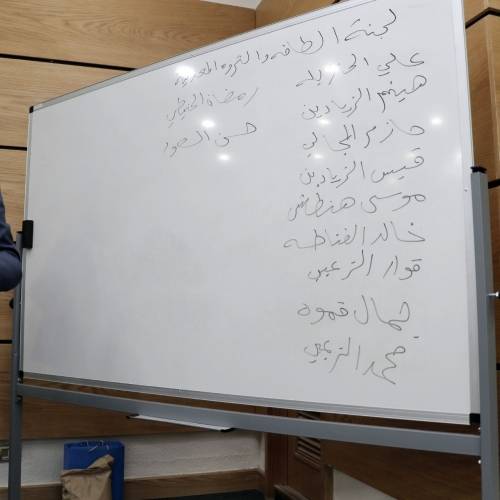 لجنة الطاقه والثروه المعدنيه
علي الخزعله
هيثم الزيادين
حازم المجالي
قيس الزيادين
موسى هنطش
خالد الفناطسه
فواز الزعبي
جمال قموه
محمد الزعبي
رمضان الحنيطي
حسن السعود